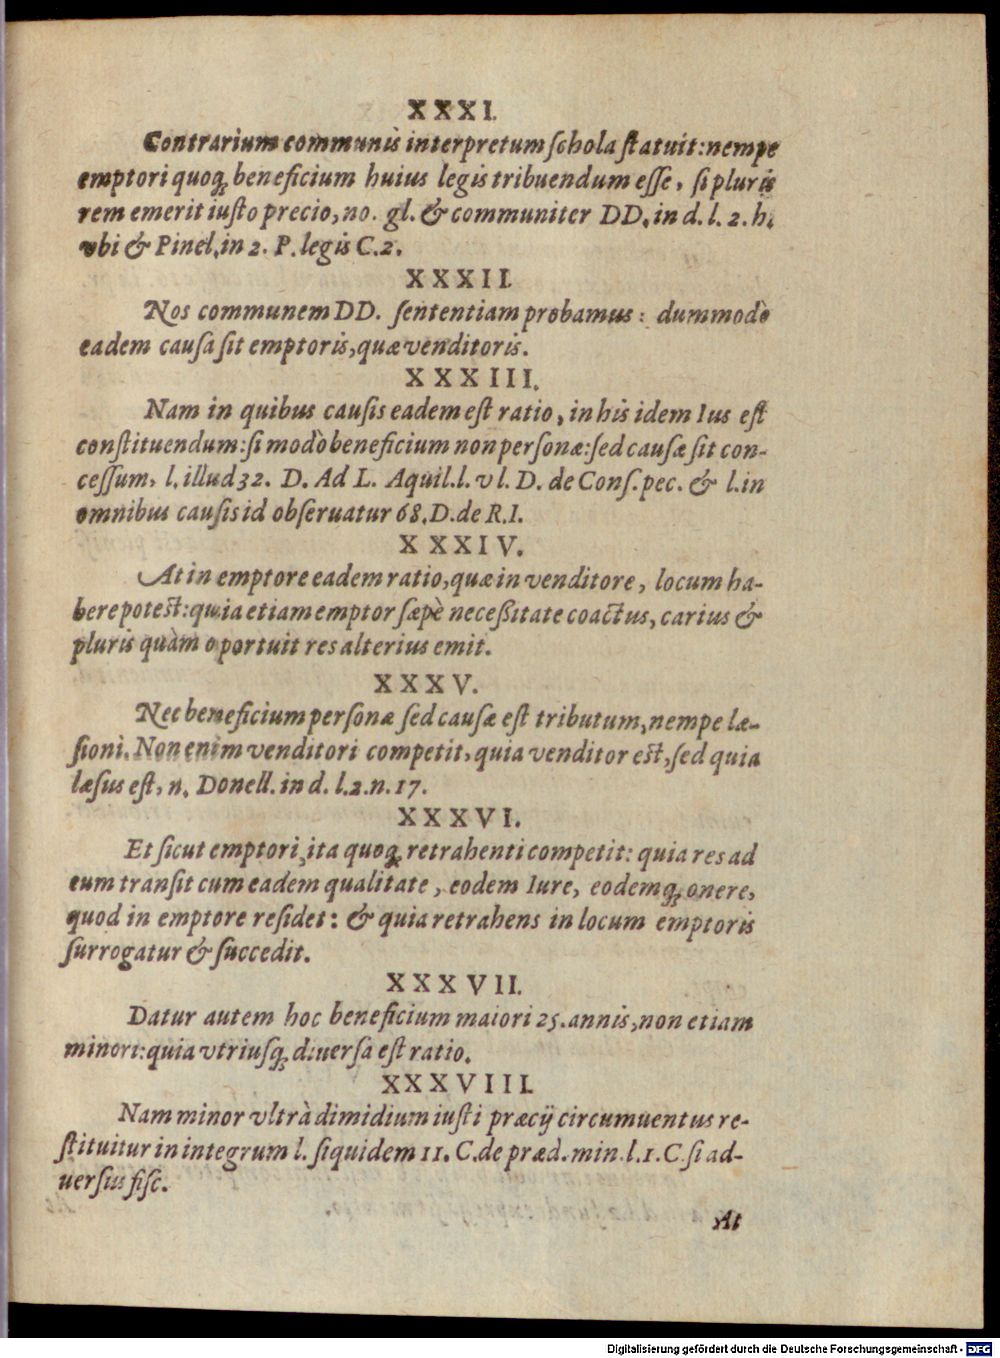 XXXI.
Contrarium communis interpretum ſchola ſtatuit: nempe
emptori quoq; beneficium huius legis tribuendum eſſe, ſi pluris
rem emerit iuſto precio, no. gl. & communiter DD. in d. l. 2. h.
vbi & Pinel. in 2. P. legis C. 2.
XXXII.
Nos communem DD. ſententiam probamus: dummodò
eadem cauſa ſit emptoris, quæ venditoris.
XXXIII.
Nam in quibus cauſis eadem eſt ratio, in his idem Ius eſt
conſtituendum: ſi modò beneficium non perſonæ: ſed cauſæ ſit con-
ceſſum, l. illud 32. D. Ad L. Aquil. l. vl. D. de Conſ. pec. & l. in
omnibus cauſis id obſeruatur 68. D. de R. I.
XXXIV.
At in emptore eadem ratio, quæ in venditore, locum ha-
bere poteſt: quia etiam emptor ſæpè neceßitate coactus, carius &
pluris quàm oportuit res alterius emit.
XXXV.
Nec beneficium perſonæ ſed cauſæ eſt tributum, nempe læ-
ſioni. Non enim venditori competit, quia venditor eſt, ſed quia
læſus eſt, n. Donell. in d. l. 2. n. 17.
XXXVI.
Et ſicut emptori, ita quoq; retrahenti competit: quia res ad
eum tranſit cum eadem qualitate, eodem Iure, eodemq; onere,
quod in emptore reſidet: & quia retrahens in locum emptoris
ſurrogatur & ſuccedit.
XXXVII.
Datur autem hoc beneficium maiori 25. annis, non etiam
minori: quia vtriuſq; diuerſa eſt ratio.
XXXVIII.
Nam minor vltrà dimidium iuſti præcij circumuentus re-
ſtituitur in integrum l. ſiquidem 11. C. de præd. min. l. 1. C. ſi ad-
uerſus fiſc.
At
Digitalisierung gefördert durch die Deutsche Forschungsgemeinschaft - DFG